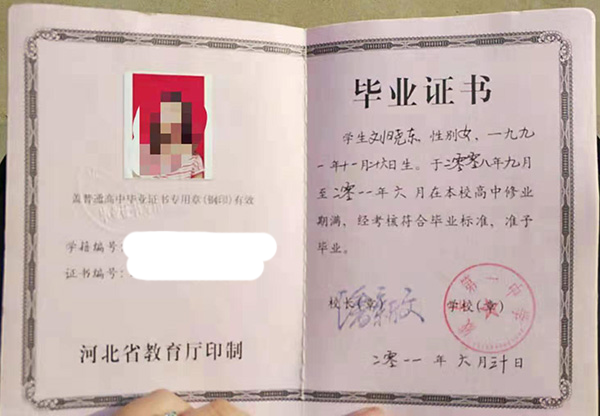 盖普通高中毕业证书专用章(钢印)有效
学籍编号:
证书编号:
河北省教育厅印制
毕业证书
学生刘晓东，性别女，一九九
一年十一月二十六日生。于二〇〇八年九月
至二〇一一年六月在本校高中修业
期满，经考核符合毕业标准，准予
毕业。
校长(章)
学校(章)
第一中学
二〇一一年六月三十日